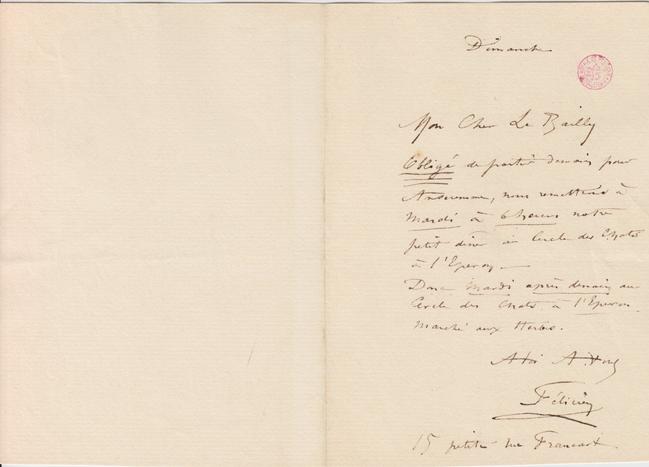 Dimanche
Mon Cher Le Bailly
Obligé de partir demain pour
Anseremme, nous remettons à
Mardi à 6 heures notre
petit diner au Cercle des Chats
à l'Eperon –
Donc Mardi après demain au
Cercle des Chats à l'Eperon
Marché aux Herbes.
A toi
Félicien
15 petite rue Francart